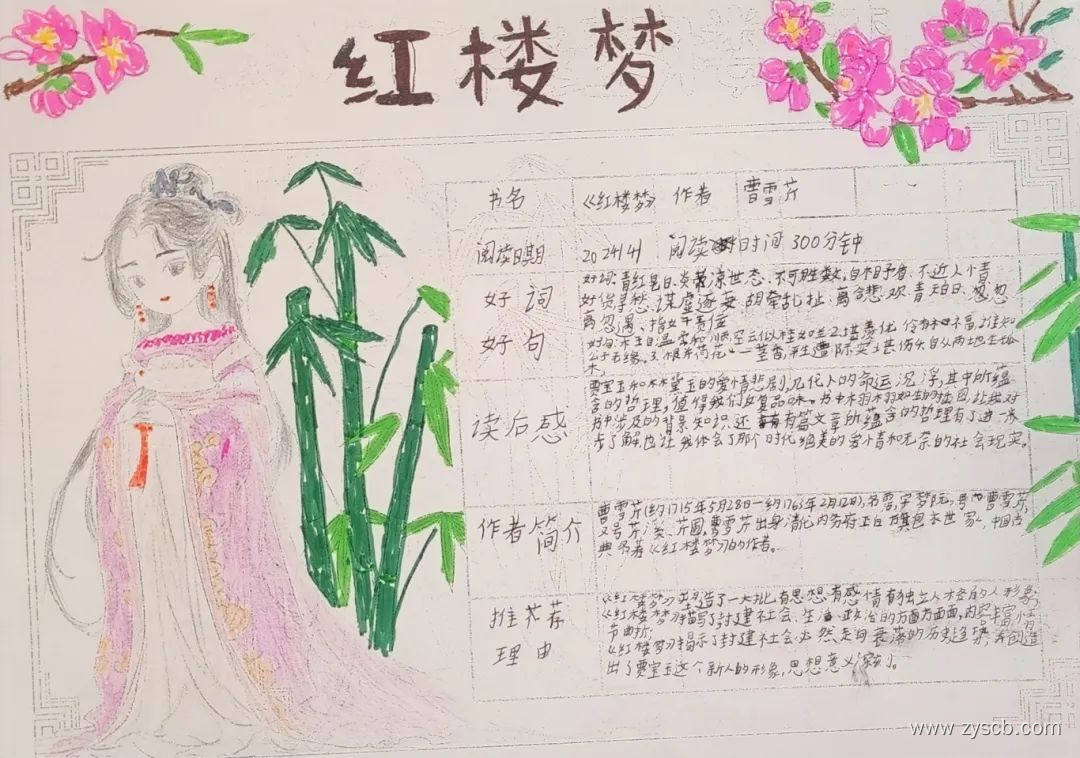 红楼梦
书名 《红楼梦》 作者 曹雪芹
阅读日期 2024 阅读时间 300分钟
好词
好句
好词:青红皂白、炎凉世态、不可胜数、自相矛盾、不近人情
寻愁、谋虚逐妄、胡牵乱扯、离合悲欢、青天白日、忽忽
读后感
贾宝玉和林黛玉的爱情悲剧,几代人的命运沉浮,其中所蕴
含的哲理,值得我们反复品味。书中栩栩如生的插图,让我对
书中涉及的背景知识,还有有篇文章所蕴含的哲理有了进一步
步了解,也让我体会了那个时代绝美的爱情和无奈的社会现实。
作者简介
曹雪芹(约1715年5月28日—约1763年2月12日),名霑,字梦阮,号曹雪芹,
又号芹溪、芹圃,曹雪芹出身清代内务府正白旗包衣世家,中国古
典名著《红楼梦》的作者。
推荐
理由
《红楼梦》塑造了一大批有思想有感情有独立人格的人形象
《红楼梦》描写了封建社会、生活、政治的方方面面,内容丰富,情
节曲折;
《红楼梦》揭示了封建社会必然走向衰落的历史趋势,并创造
出了贾宝玉这个新人的形象,思想意义深刻。
www.zyscb.com